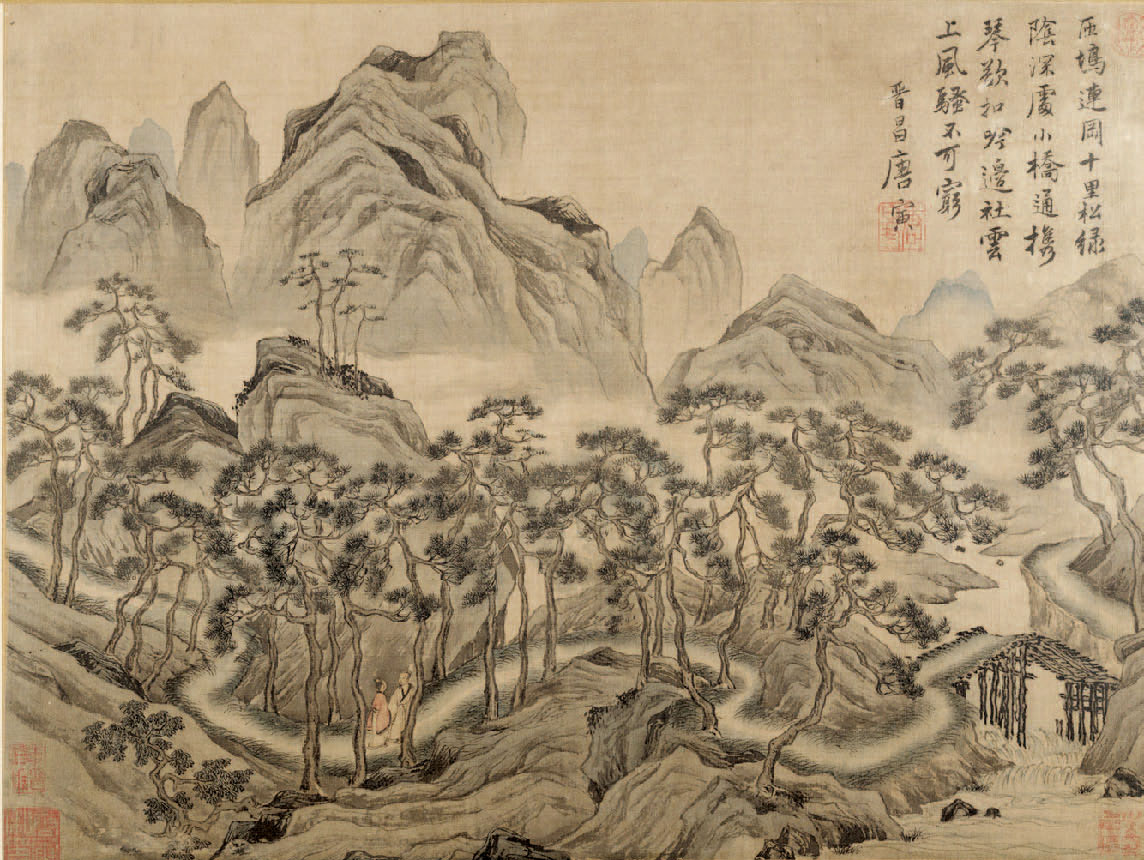 匝塢連岡十里松綠
陰深處小橋通攜
琴欵扣吟邊社雲
上風騷不可窮
晋昌唐寅